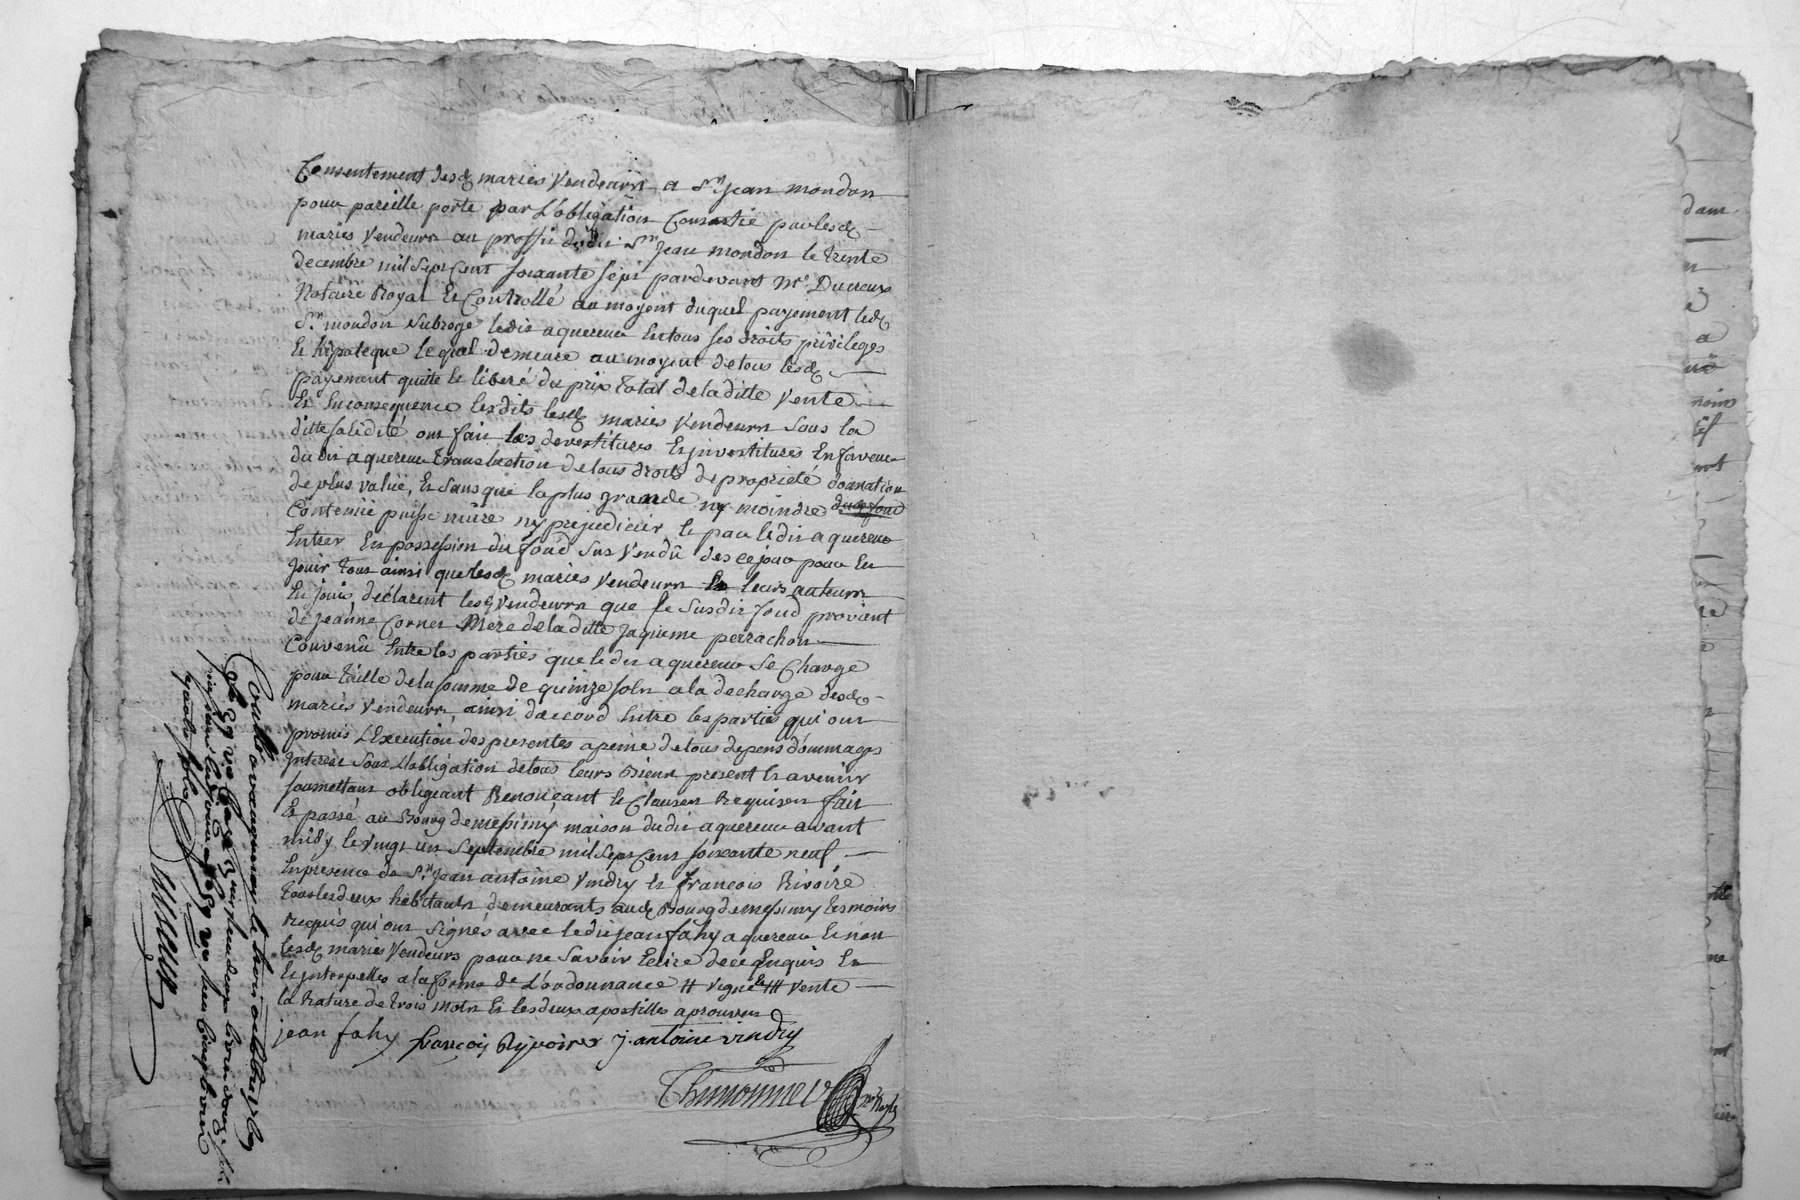 Consentement desd maries vendeurs a Sr jean mondon
pour pareille porte par L'obligation Consentie par lesd
maries vendeurs au proffit dudit Sr jean mondon le trente
decembre mil sept cent soixante sept pardevant Me Ducreux
Notaire Royal Et Controllé au moyent duquel payement led
Sr mondon subroge ledit aquereur En tous ses droits privileges
Et hipoteque lequel demeure au moyent de tous lesd
payement quitte Et liberé du prix total de la ditte vente
Et En consequence lesdits lesd maries vendeurs sous la
ditte solidité ont fait les devestitures Et jnvestitures En faveur
du dit aquereur translaction de tous droits de propriété donnation
de plus value, Et sans que la plus grande ny moindre
Contenüe puisse nuire ny prejudicier Et par ledit aquereur
Entrer En possession du fond sus vendû des ce jour pour En
jouir tous ainsi que lesd maries vendeurs Et leurs auteurs
En jouis, déclarent lesd vendeurs que le susdit fond provient
de jeanne Cornet Mere de la ditte jaqueme perrachon
Convenû Entre les parties que ledit aquereur se Charge
pour taille de la somme de quinze sols a la decharge desd
maries vendeurs, ainsi d'accord Entre les parties qui ont
promis L'Execution des presentes a peine de tous depens dommages
Interest sous L'obligation de tous leurs Biens present Et avenir
soumettans obligeant Renonçant Et Clauses Requises fait
Et passé au Bourg de messimy maison du dit aquereur avant
midy le vingt un Septembre mil sept Cent soixante neuf
En presence de Sr Jean antoine Vindry Et francois Rivoire
tous les deux habitants demeurants aud Bourg de messimy temoins
Requis qui ont Signés avec ledit jean fahy aquereur Et non
lesd maries vendeurs pour ne Savoir Ecrire de ce Enquis Et
Et jnterpelles a la forme de L'ordonnance # vigne # vente
la Rature de trois mots Et les deux apostilles aprouvés
jean fahy françois Ryvoire J. antoine vindry
Thimonnier
Conllé a vaugneray le trois octobre